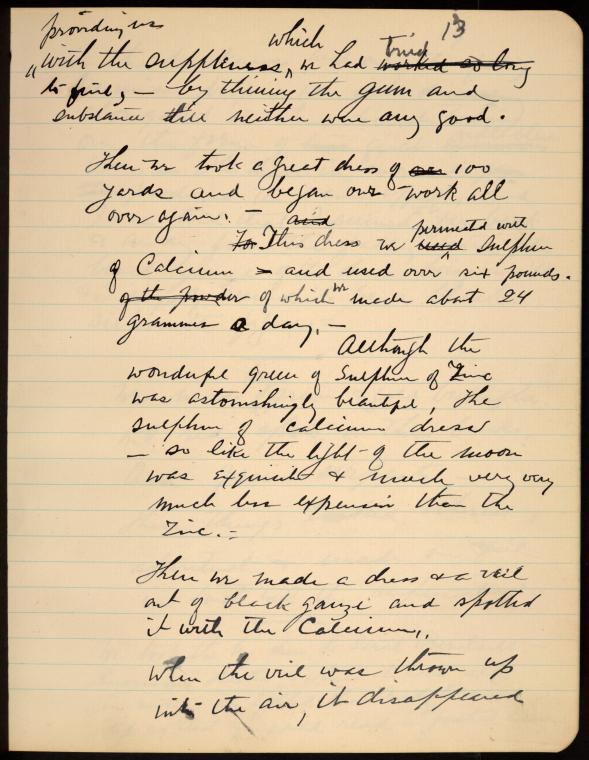 13
providing us
which
tried
"with the suppleness, we had worked so long
to find, — by thining the gum and
substance till neither were any good.
Then we took a great dress of 100
yards and began our work all
over again. — and
permeated with
For This dress we used Sulphur
of Calcium — and used over six pounds.
of the powder of which we made about 24
grammes a day, —
Although the
wonderful green of Sulphur of Zinc
was astonishingly beautiful, The
sulphur of calcium dress
— so like the light of the moon
was exquisite & much very very
much less expensive than the
Zinc. —
Then we made a dress & a veil
out of black gauze and spotted
it with the Calcium,.
when the veil was thrown up
into the air, it disappeared